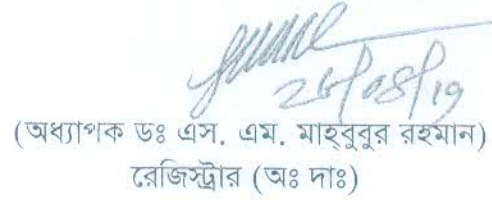 26/08/19
(অধ্যাপক ডঃ এস. এম. মাহবুবুর রহমান)
রেজিস্ট্রার (অঃ দাঃ)